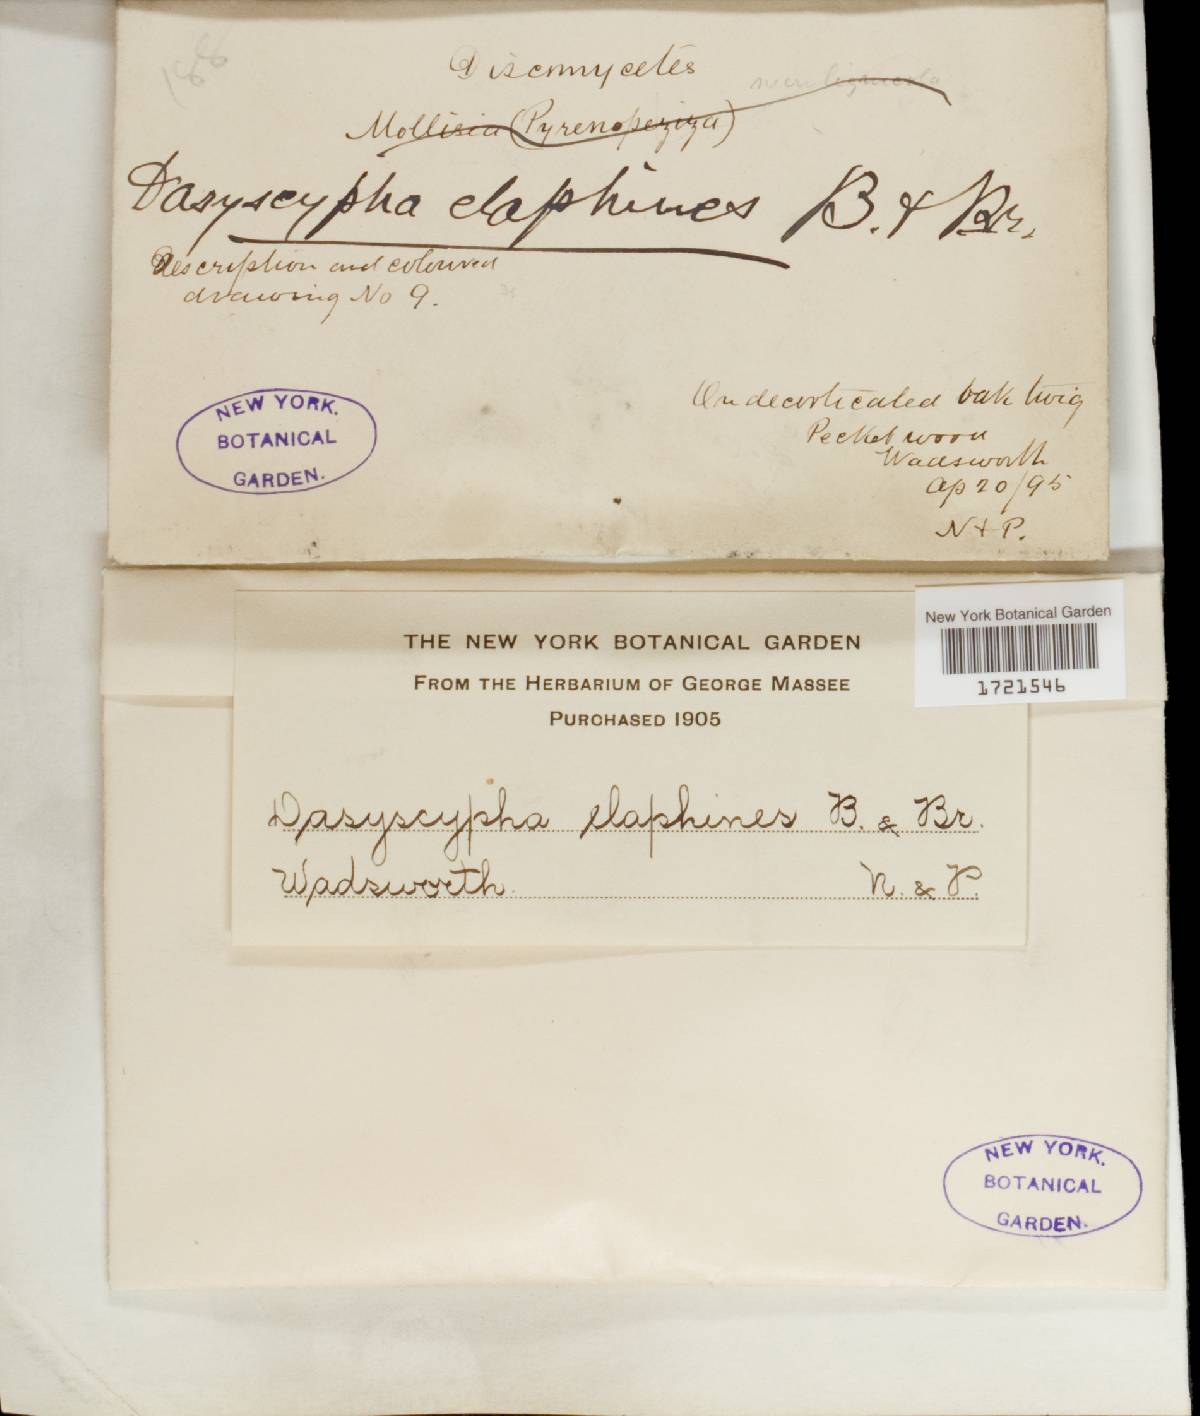 188
Discomycetes
Mollisia (Pyrenopeziza)
Dasyscypha elaphines B. & Br.
Description and coloured
drawing No 9.
NEW YORK.
BOTANICAL
GARDEN.
On decorticated oak twig
Pecket wood
Wadsworth
Ap 20/95
N & P.
New York Botanical Garden
1721546
THE NEW YORK BOTANICAL GARDEN
FROM THE HERBARIUM OF GEORGE MASSEE
PURCHASED 1905
Dasyscypha elaphines B. & Br.
Wadsworth N. & P.
NEW YORK.
BOTANICAL
GARDEN.